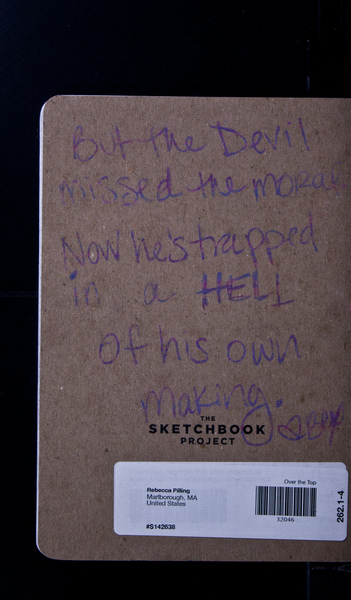 But the Devil
missed the moral
Now he's trapped
in a HELL
of his own
making.
THE
SKETCHBOOK
PROJECT
Over the Top
Rebecca Pilling
Marlborough, MA
United States
32046
#S142638
262.1-4